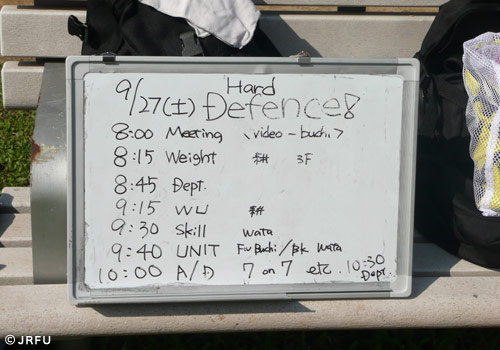 9/27(土) Hard Defence!
8:00 Meeting <video-buchi>
8:15 Weight 3F
8:45 Dept.
9:15 WU
9:30 Skill wata
9:40 UNIT Fw Buchi / Bk wata
10:00 A/D 7 on 7 etc. 10:30 Dept.
©JRFU